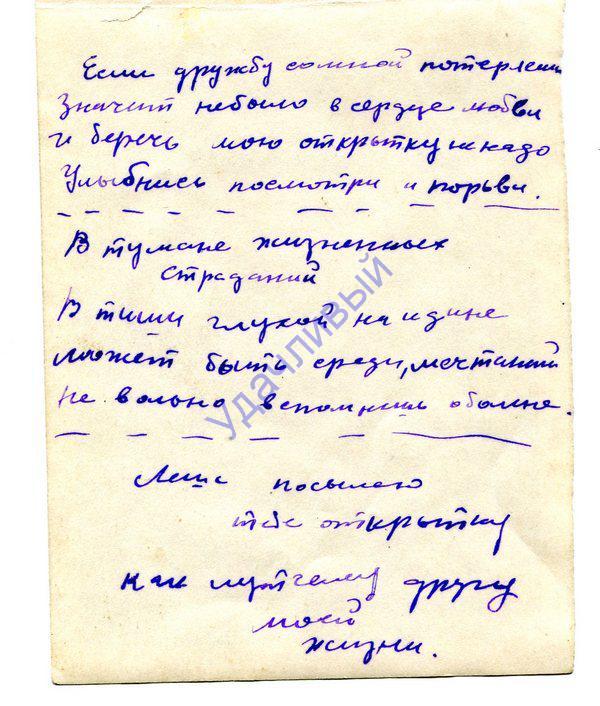 Если дружбу сомной потеряеш
Значит небыло в сердце любви
и беречь мою открытку ненадо
Улыбнись посмотри и порви.
В тумане жизненных
страданий
В тиши глухой на идине
может быть среди, мечтаний
не вольно вспомнишь обомне.
Леше посылаю
тебе открытку
как лутчему другу
моей
жизни.
Удачливый